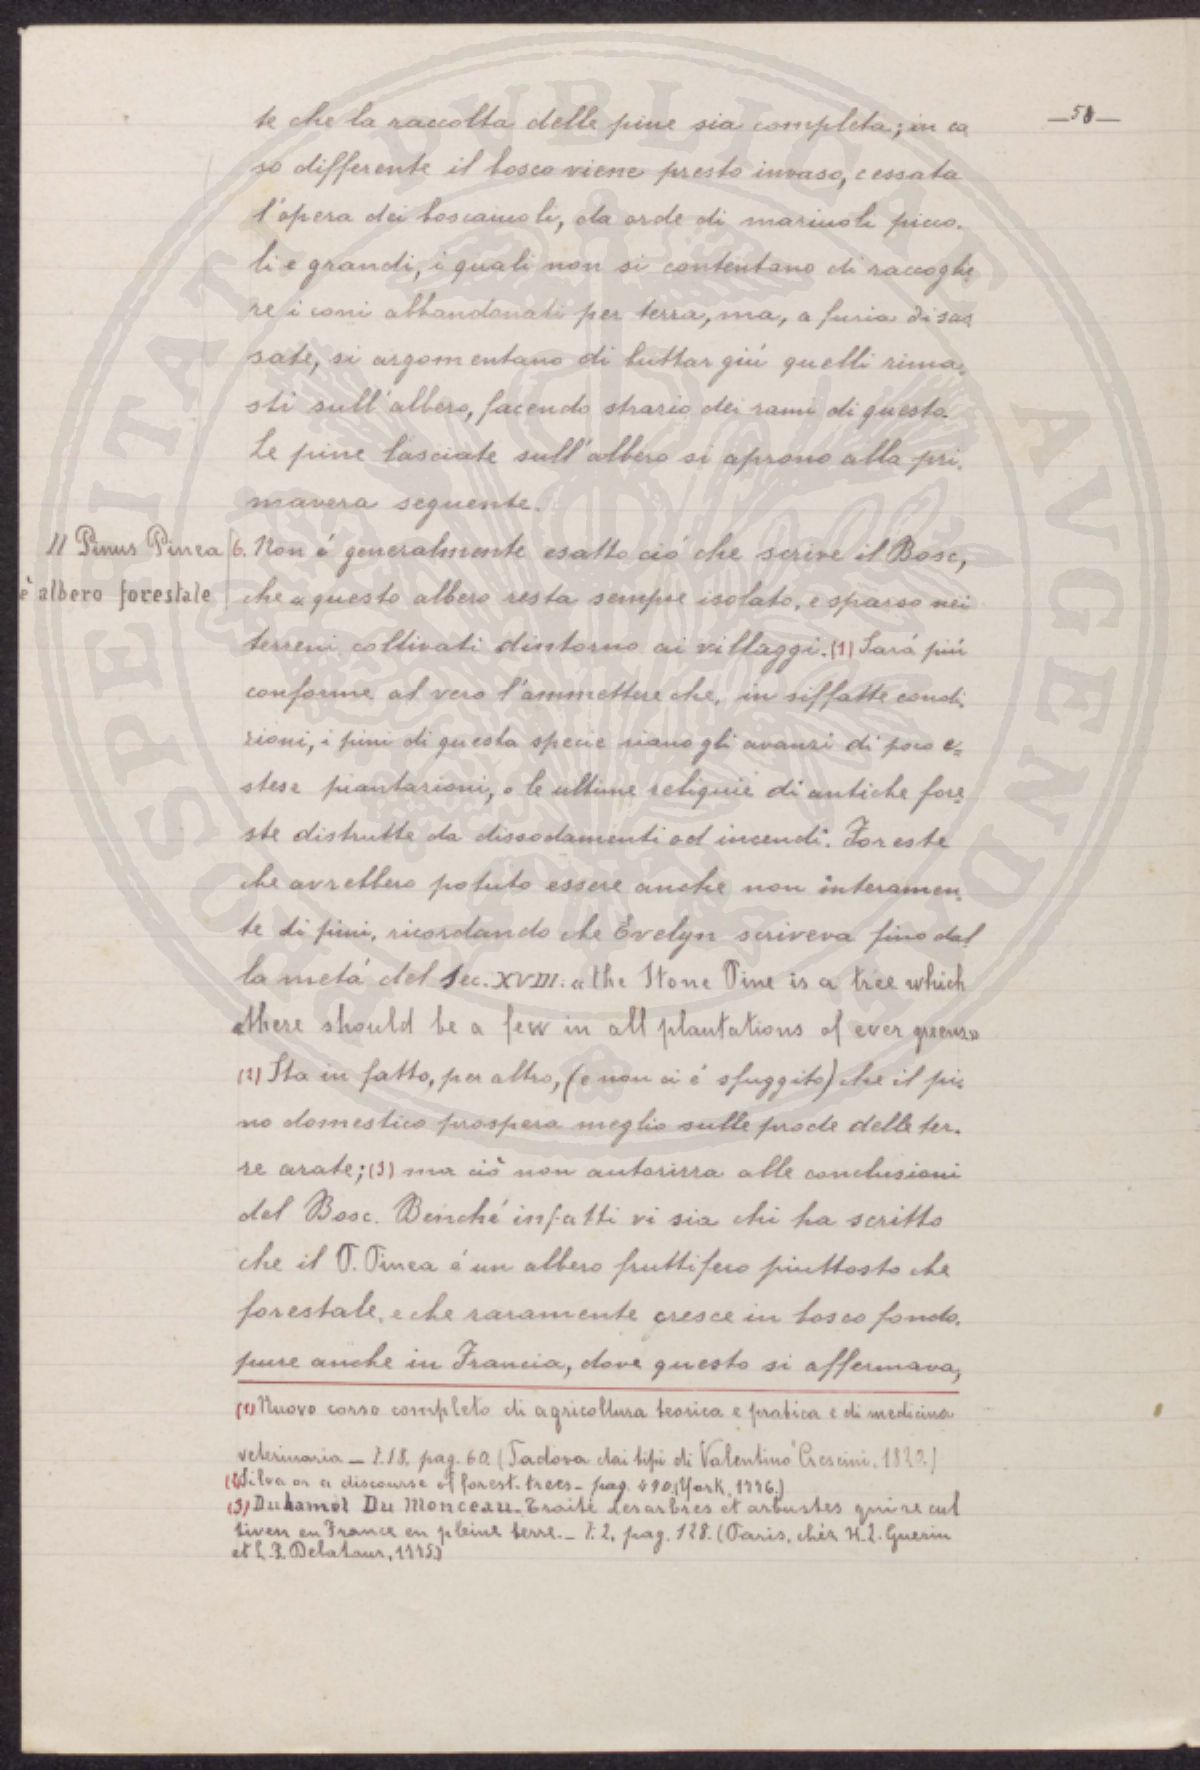 —58—
te che la raccolta delle pine sia completa; in ca
so differente il bosco viene presto invaso, cessata
l'opera dei boscaiuoli, da orde di mariuoli picco-
li e grandi, i quali non si contentano di raccoglie
re i coni abbandonati per terra, ma, a furia di sas
sate, si argomentano di buttar giù quelli rima-
sti sull'albero, facendo strazio dei rami di questo.
Le pine lasciate sull'albero si aprono alla pri-
mavera seguente.
Il Pinus Pinea
è albero forestale
6. Non é generalmente esatto ció che scrive il Bosc,
che « questo albero resta sempre isolato, e sparso nei
terreni coltivati dintorno ai villaggi. (1) Sará piú
conforme al vero l'ammettere che, in siffatte condi-
zioni, i pini di questa specie siano gli avanzi di poco e=
stese piantazioni, o le ultime reliquie di antiche fore=
ste distrutte da dissodamenti od incendi. Foreste
che avrebbero potuto essere anche non interamen-
te di pini, ricordando che Evelyn scriveva fino dal
la metá del Sec. XVII: « the Stone Pine is a tree which
there should be a few in all plantations of ever greens»
(2) Sta in fatto, per altro, (e non ci é sfuggito) che il pi-
no domestico prospera meglio sulle prode delle ter-
re arate; (3) ma ciò non autorizza alle conclusioni
del Bosc. Benché infatti vi sia chi ha scritto
che il P. Pinea é un albero fruttifero piuttosto che
forestale, e che raramente cresce in bosco fondo,
pure anche in Francia, dove questo si affermava,
(1) Nuovo corso completo di agricoltura teorica e pratica e di medicina
veterinaria — t. 18. pag. 60. (Padova dai tipi di Valentino Crescini, 182
(2) Silva or a discourse of forest-trees - pag. (York, 1776.)
(3) Duhamel Du Monceau. Traité des arbres et arbustes qui se cul
tiven en France en pleine terre. — t. 2, pag. 128. (Paris, chéz H. L. Guerin
et L. F. Delatour,
HOSPITALITATI PUBLICAE AUGENDAE